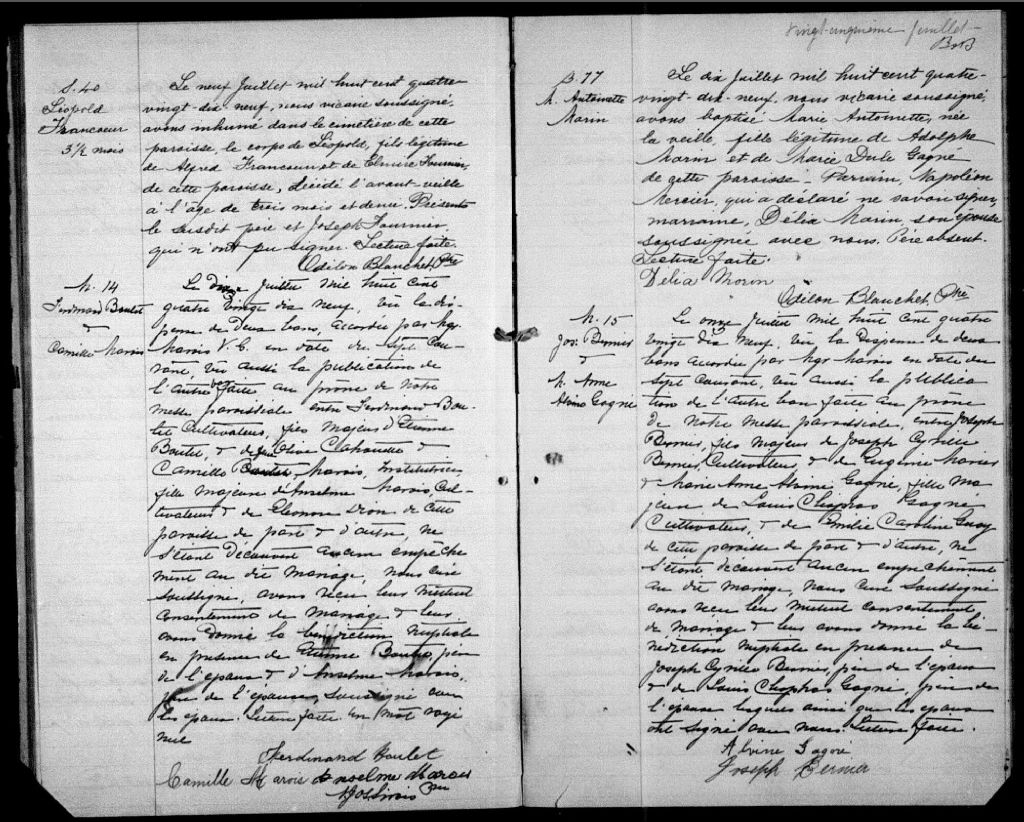 S. 40
Léopold
Francoeur
3 1/2 mois
Le neuf Juillet mil huit cent quatre
vingt-dix-neuf, nous vicaire soussigné,
avons inhumé dans le cimetière de cette
paroisse, le corps de Léopold, fils légitime
de Alfred Francoeur et de Elmire Fournier,
de cette paroisse, décédé l'avant-veille
à l'âge de trois mois et demi. Présents
le susdit père et Joseph Fournier,
qui n'ont pu signer. Lecture faite.
Odilon Blanchet, Ptre
M. 14
Ferdinand Boulet
&
Camille Marois
Le dix Juillet mil huit cent
quatre vingt dix neuf, vu la dis-
pense de deux bans, accordée par Mgr
Marois V. G. en date du sept Cou-
rant, vu aussi la publication de
l'autre faite au prône de notre
messe paroissiale entre Ferdinand Bou-
let Cultivateur, fils majeur d'Etienne
Boulet, & de Olive
Camille Marois, Institutrice
fille majeure d'Anselme Marois, Cul-
tivateur & de Eleonore Dion de cette
paroisse de part & d'autre, ne
s'étant découvert aucun empêche
ment au dit mariage, nous curé
soussigné, avons reçu leur mutuel
consentement de mariage & leur
avons donné la bénédiction nuptiale
en présence de Etienne Boulet, père
de l'époux & d'Anselme Marois,
père de l'épouse, soussigné avec
les époux. Lecture faite. Un mot rayé
nul
Ferdinand Boulet
Camille Marois Anselme Marois
Ptre
Vingt-cinquième feuillet
B. 77
M. Antoinette
Morin
Le dix Juillet mil huit cent quatre-
vingt-dix-neuf, nous vicaire soussigné,
avons baptisé Marie Antoinette, née
la veille, fille légitime de Adolphe
Morin et de Marie Gagné
de cette paroisse - Parrain, Napoléon
Mercier, qui a déclaré ne savoir signer,
marraine, Délia Morin, son épouse
soussignée avec nous. Père absent.
Lecture faite.
Délia Morin
Odilon Blanchet, Ptre
M. 15
Jos. Bernier
&
M. Anne
Gagné
Le onze Juillet mil huit cent quatre
vingt dix neuf, vu la dispense de deux
bans accordée par Mgr Marois en date du
sept courant, vu aussi la publica
tion de l'autre ban faite au prône
de notre messe paroissiale, entre Joseph
Bernier, fils majeur de Joseph Cyrille
Bernier, Cultivateur, & de Eugénie
& Marie Anne Gagné, fille ma
jeure de Louis Gagné
Cultivateur, & de Emilie Caroline Guay
de cette paroisse de part & d'autre, ne
s'étant découvert aucun empêchement
au dit mariage, nous curé soussigné
avons reçu leur mutuel consentement
de mariage & leur avons donné la bé-
nédiction nuptiale en présence de
Joseph Cyrille Bernier, père de l'époux
& de Louis Gagné, père de
l'épouse lesquels ainsi que les époux
ont signé avec nous. Lecture faite.
Gagné
Joseph Bernier